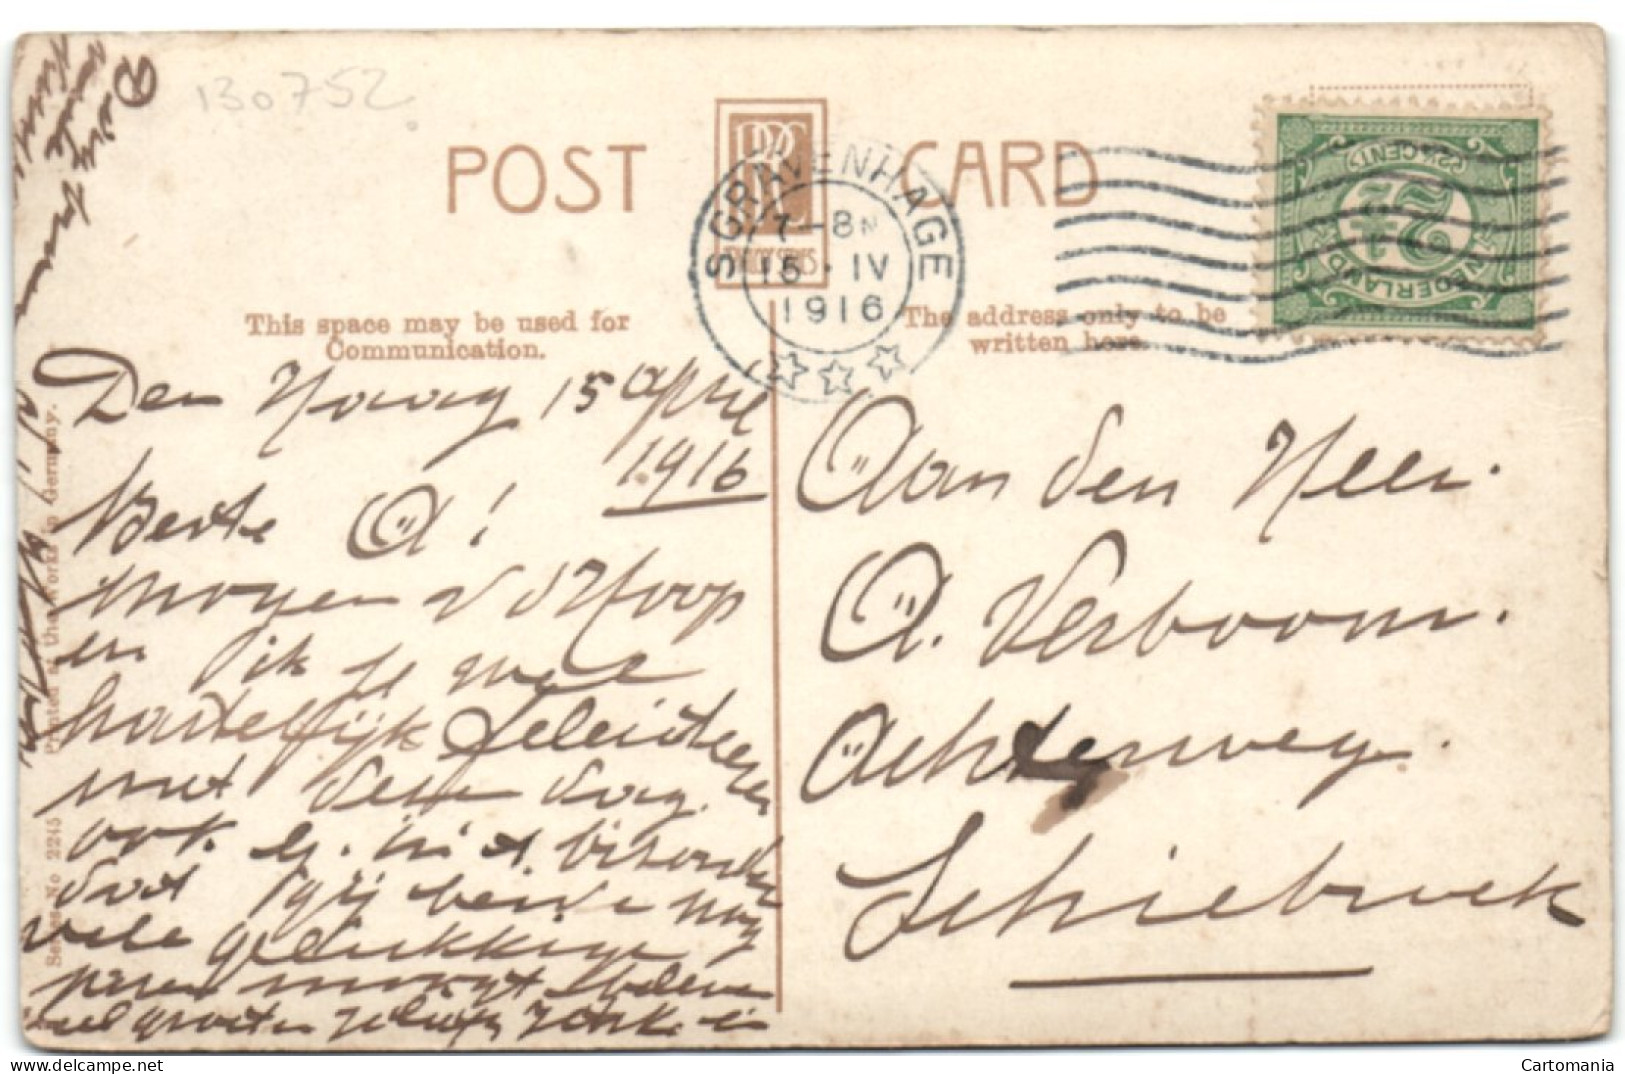 130752
POST CARD
'S GRAVENHAGE
7-8N
15 · IV
1916
NEDERLAND
2½
(2½ CENT)
This space may be used for
Communication.
The address only to be
written here.
Den Haag 15 April
1916
Beste A!
Morgen v d Hoop
en ik je mee
hartelijk feliciteeren
met deze dag.
ook G. in 't bizonder
dat gij beide nog
vele gelukkige
jaren moogt beleven
veel groeten
Aan den Heer
A. Verboom.
Achterweg.
Schiebroek
Series No 2245 Printed at the Works in Germany.
Cartomania